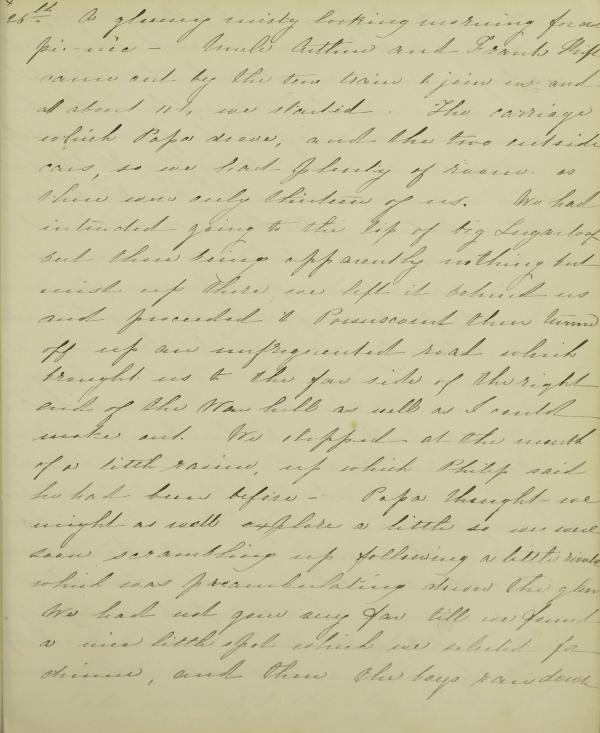 25th. A gloomy misty looking morning for our
pic-nic – Uncle Arthur and Frank
came out by the ten train to join us and
at about 11½ we started. The carriage
which Papa drove, and the two outside
cars, so we had plenty of room as
there were only thirteen of us. We had
intended going to the top of big Sugarloaf
but there being apparently nothing but
mist up there we left it behind us
and proceeded to Powerscourt then turned
off up an unfrequented road which
brought us to the far side of the right
end of the War hill as well as I could
make out. We stopped at the mouth
of a little ravine, up which Philip said
he had been before – Papa thought we
might as well explore a little so we were
soon scrambling up following a little rivulet
which was perambulating down the glen
We had not gone any far till we found
a nice little spot which we selected for
dinner, and then the boys ran down